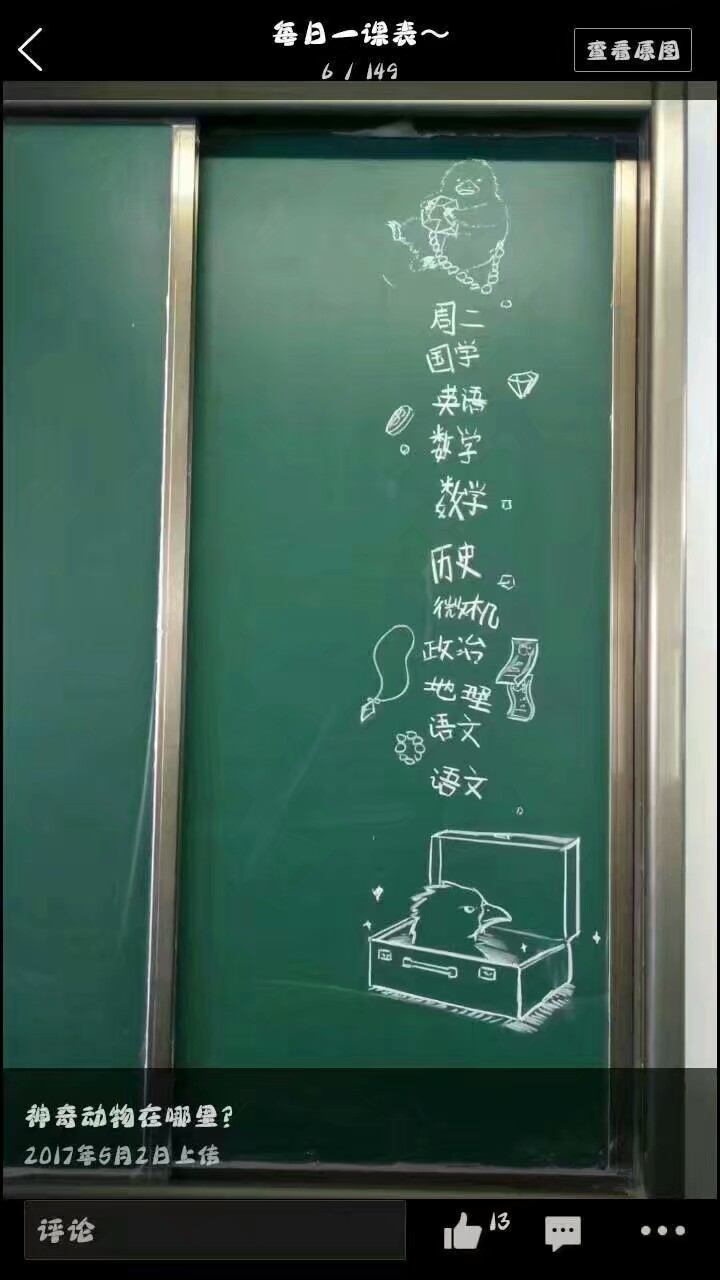 每日一课表～
查看原图
6 / 149
周二
国学
英语
数学
数学
历史
微机
政治
地理
语文
语文
神奇动物在哪里？
2017年5月2日上传
评论
13